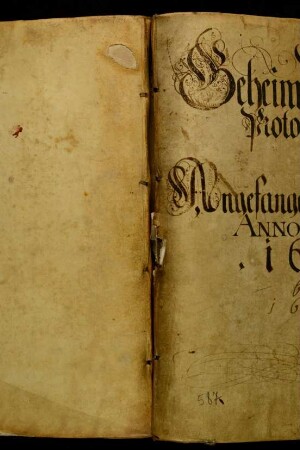 Geheim
Proto
Angefange
ANNO
. 1 6
6
1 6
587